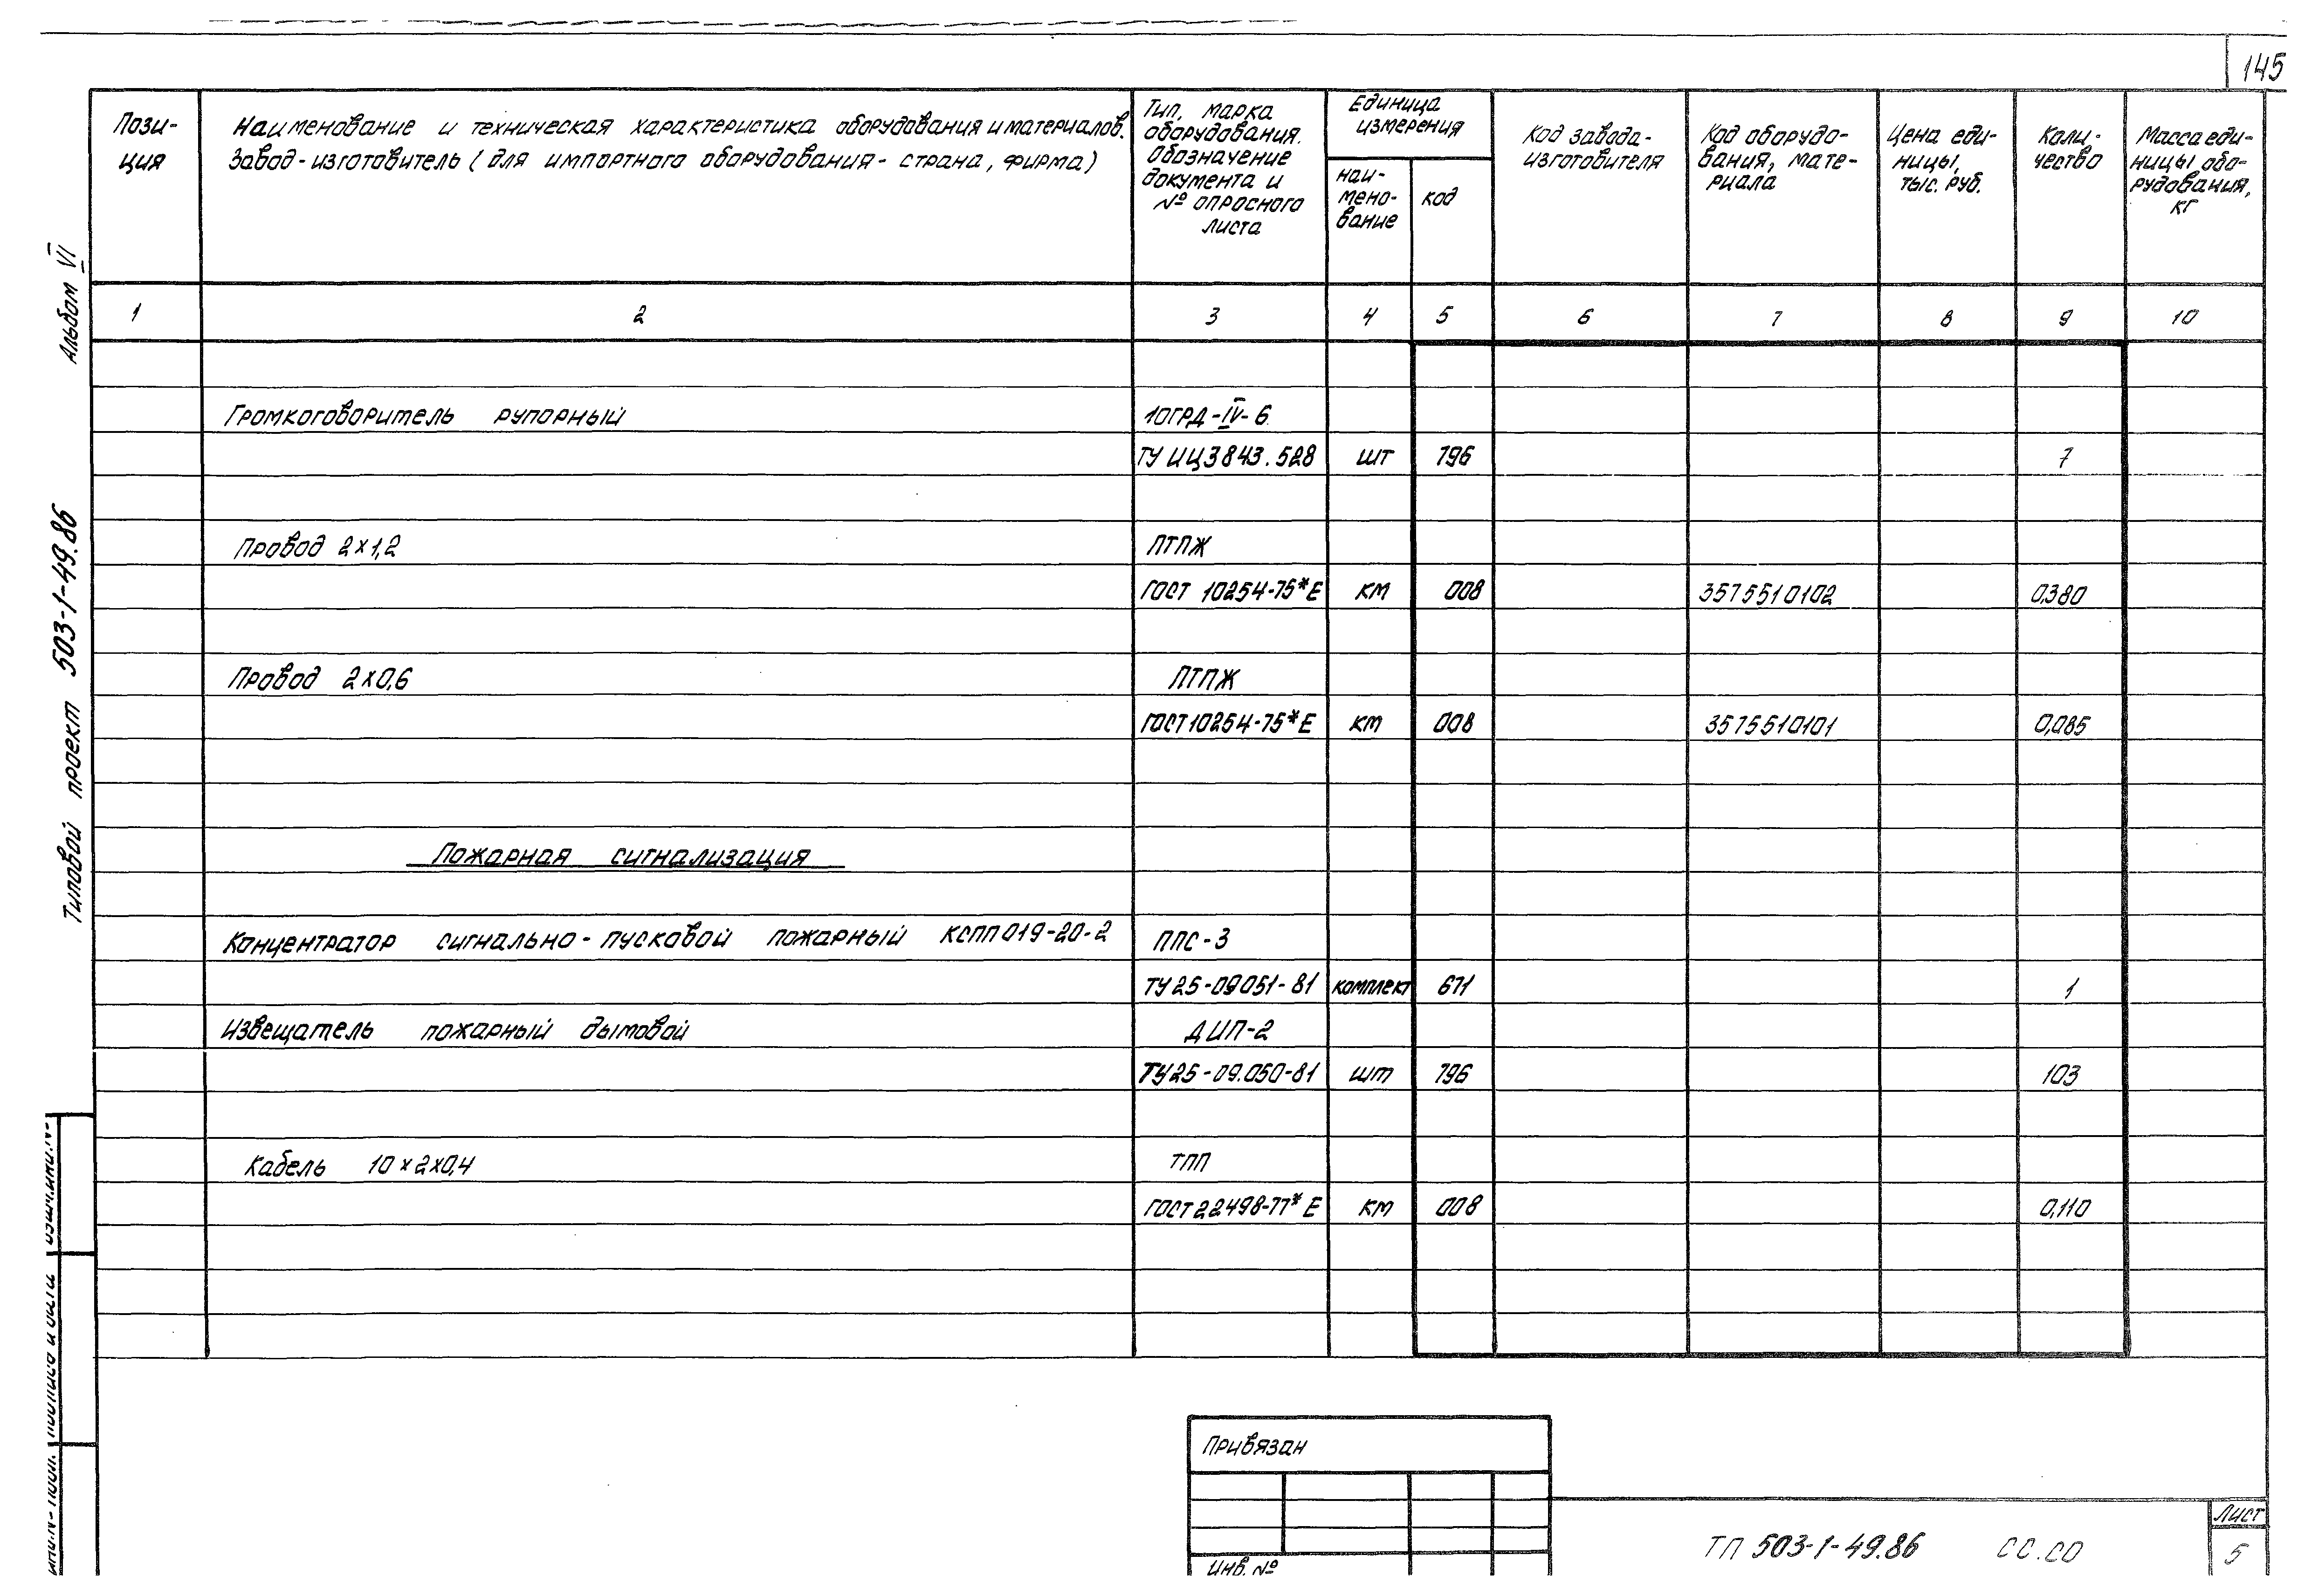 145
Пози-
ция
Наименование и техническая характеристика оборудования и материалов.
Завод-изготовитель (для импортного оборудования- страна, фирма)
Тип, марка
оборудования.
Обозначение
документа и
№ опросного
листа
Единица
измерения
наи-
мено-
вание
код
Код завода-
изготовителя
Код оборудо-
вания, мате-
риала
Цена еди-
ницы,
тыс. руб.
Коли-
чество
Масса еди-
ницы обо-
рудования,
кг
1 2 3 4 5 6 7 8 9 10
Громкоговоритель рупорный 10ГРД-IV-6
ТУ ИЦ3843.528 шт 796 7
Провод 2×1,2 ПТПЖ
ГОСТ 10254-75*Е км 008 3575510102 0,380
Провод 2×0,6 ПТПЖ
ГОСТ 10254-75*Е км 008 3575510101 0,085
Пожарная сигнализация
Концентратор сигнально-пусковой пожарный КСПП019-20-2 ППС-3
ТУ25-09051-81 комплект 671 1
Извещатель пожарный дымовой ДИП-2
ТУ25-09.050-81 шт 796 103
Кабель 10×2×0,4 ТПП
ГОСТ 22498-77*Е км 008 0,110
Альбом VI
Типовой проект 503-1-49.86
Привязан
Инв. №
ТП 503-1-49.86 СС.СО
Лист
5